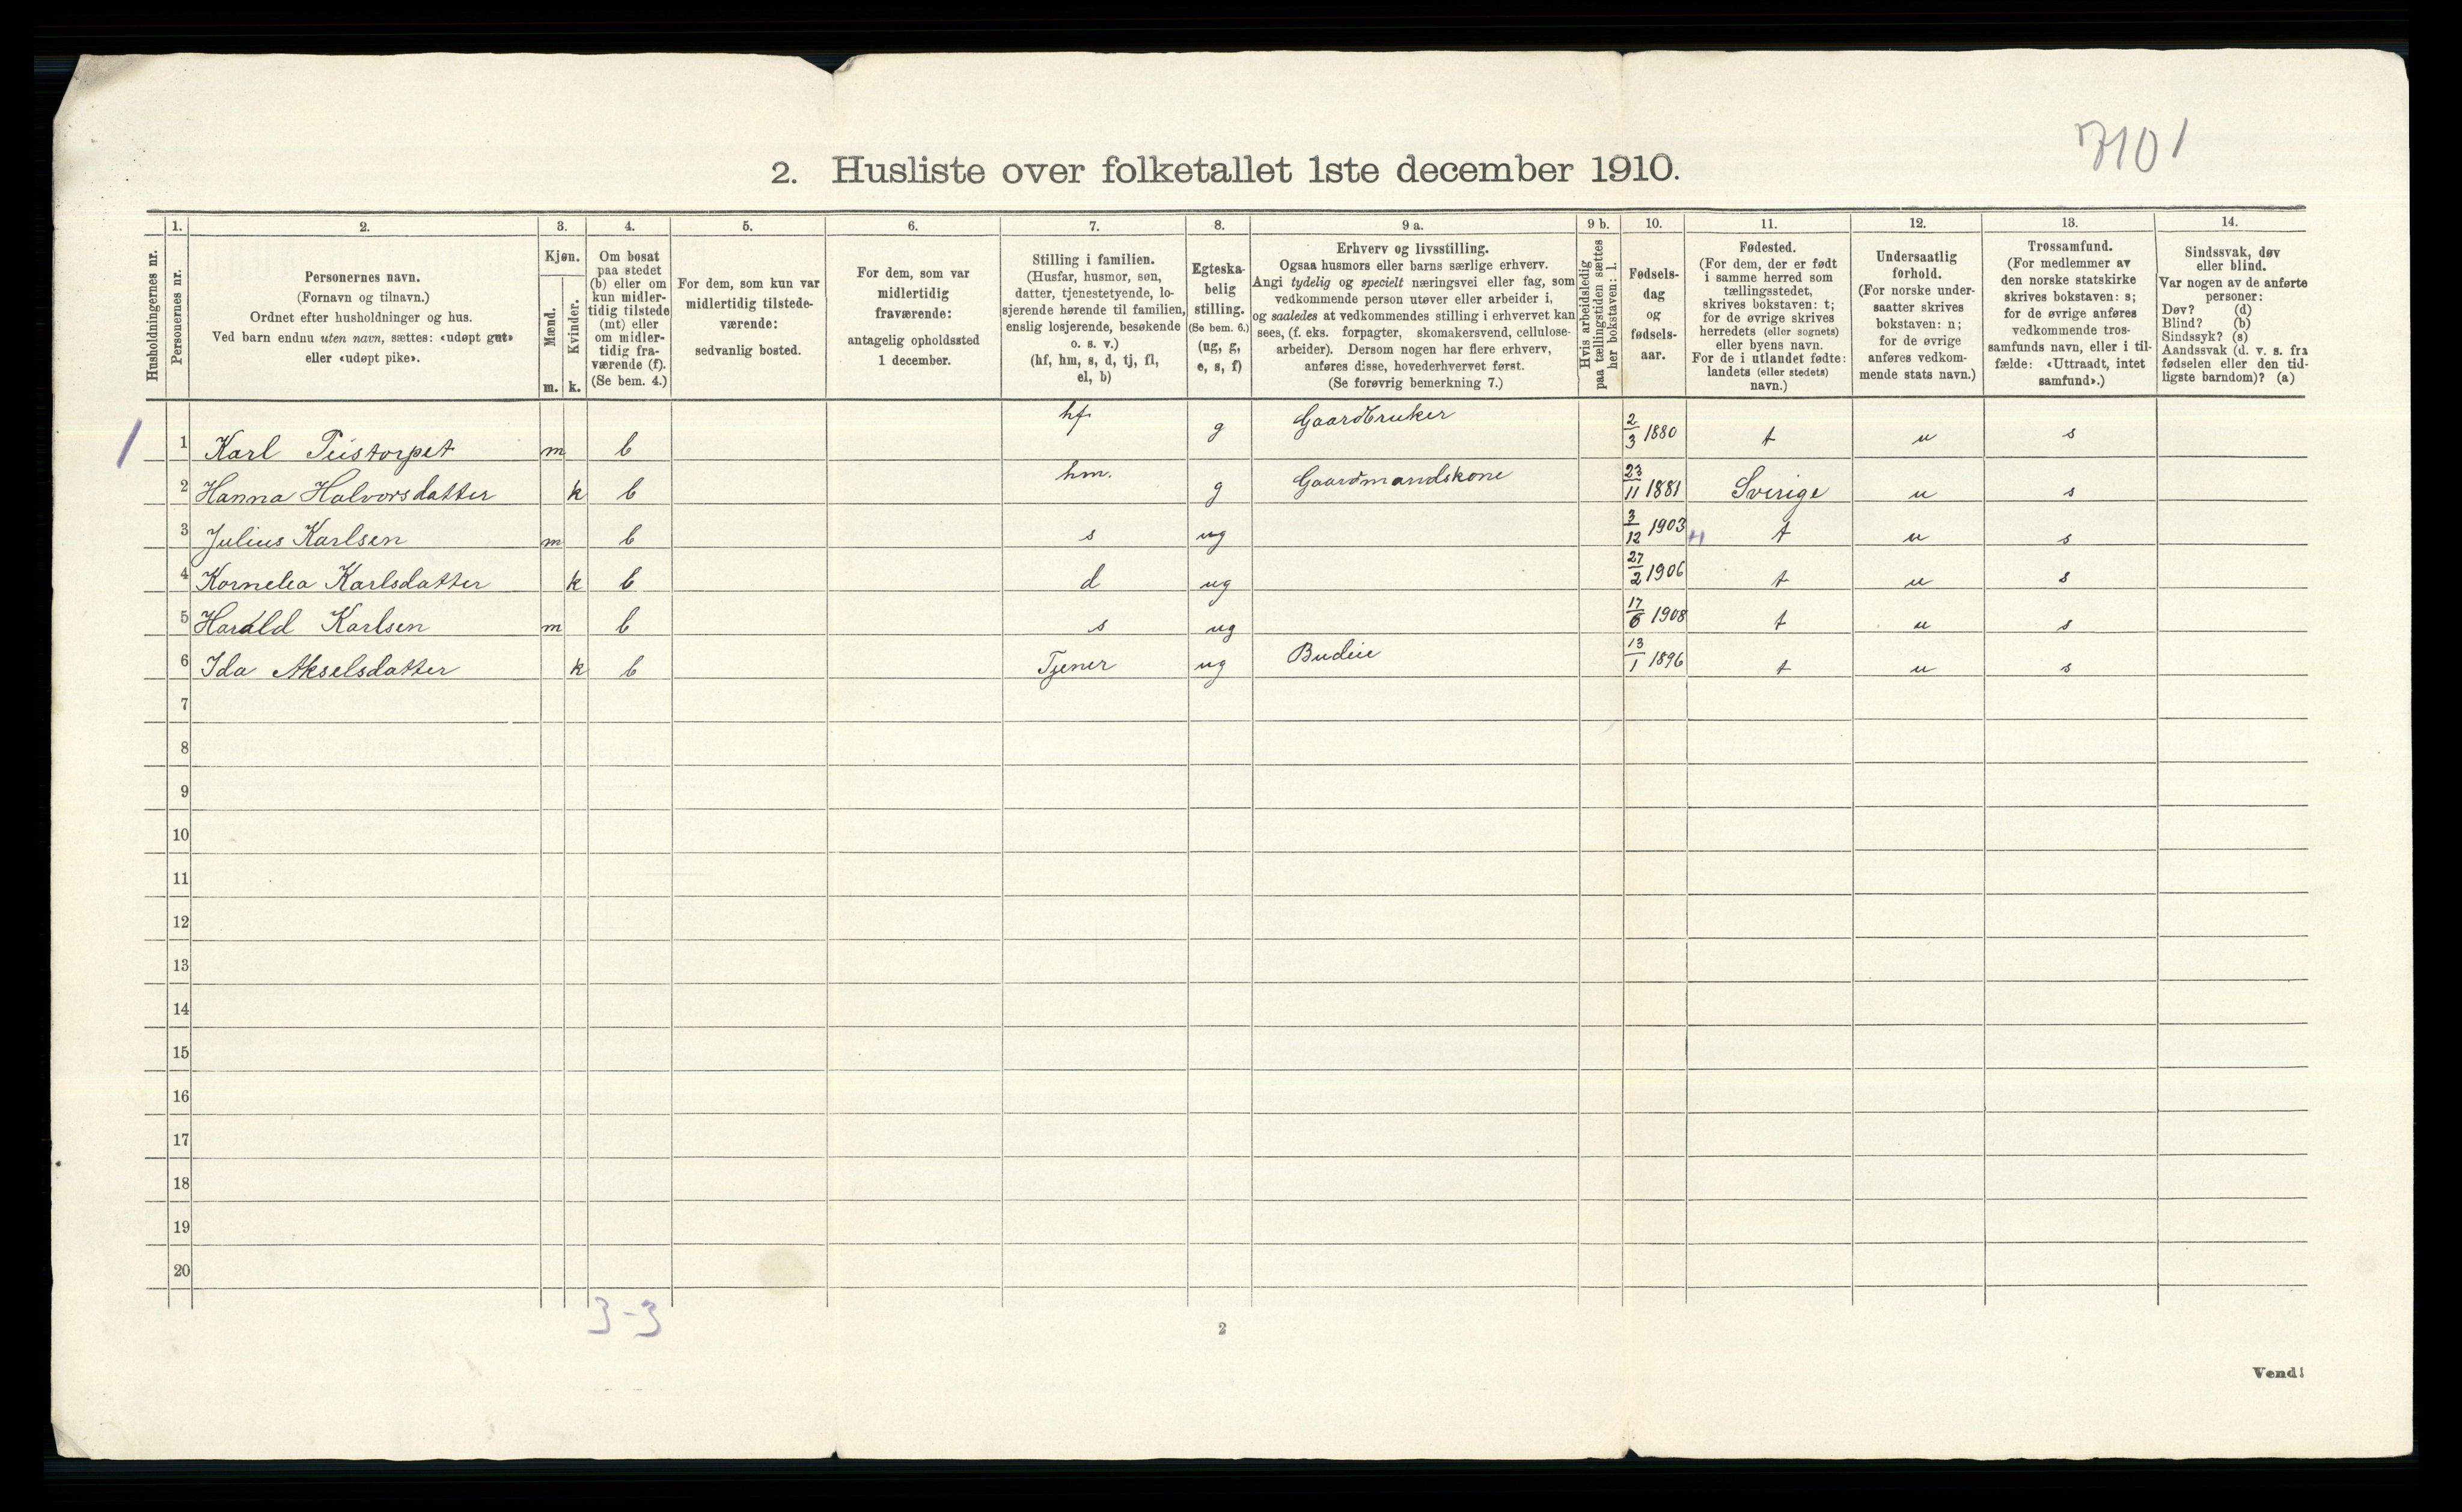 7101
2. Husliste over folketallet 1ste december 1910.
Husholdningernes nr.
1.
Personernes nr.
2.
Personernes navn.
(Fornavn og tilnavn.)
Ordnet efter husholdninger og hus.
Ved barn endnu uten navn, sættes: «udøpt gut»
eller «udøpt pike».
3.
Kjøn.
Mænd.
m.
Kvinder.
k.
4.
Om bosat
paa stedet
(b) eller om
kun midler-
tidig tilstede
(mt) eller
om midler-
tidig fra-
værende (f).
(Se bem. 4.)
5.
For dem, som kun var
midlertidig tilstede-
værende:
sedvanlig bosted.
6.
For dem, som var
midlertidig
fraværende:
antagelig opholdssted
1 december.
7.
Stilling i familien.
(Husfar, husmor, søn,
datter, tjenestetyende, lo-
sjerende hørende til familien,
enslig losjerende, besøkende
o. s. v.)
(hf, hm, s, d, tj, fl,
el, b)
8.
Egteska-
belig
stilling.
(Se bem. 6.)
(ug, g,
e, s, f)
9 a.
Erhverv og livsstilling.
Ogsaa husmors eller barns særlige erhverv.
Angi tydelig og specielt næringsvei eller fag, som
vedkommende person utøver eller arbeider i,
og saaledes at vedkommendes stilling i erhvervet kan
sees, (f. eks. forpagter, skomakersvend, cellulose-
arbeider). Dersom nogen har flere erhverv,
anføres disse, hovederhvervet først.
(Se forøvrig bemerkning 7.)
9 b.
Hvis arbeidsledig
paa tællingstiden sættes
her bokstaven: l.
10.
Fødsels-
dag
og
fødsels-
aar.
11.
Fødested.
(For dem, der er født
i samme herred som
tællingsstedet,
skrives bokstaven: t;
for de øvrige skrives
herredets (eller sognets)
eller byens navn.
For de i utlandet fødte:
landets (eller stedets)
navn.)
12.
Undersaatlig
forhold.
(For norske under-
saatter skrives
bokstaven: n;
for de øvrige
anføres vedkom-
mende stats navn.)
13.
Trossamfund.
(For medlemmer av
den norske statskirke
skrives bokstaven: s;
for de øvrige anføres
vedkommende tros-
samfunds navn, eller i til-
fælde: «Uttraadt, intet
samfund».)
14.
Sindssvak, døv
eller blind.
Var nogen av de anførte
personer:
Døv? (d)
Blind? (b)
Sindssyk? (s)
Aandssvak (d. v. s. fra
fødselen eller den tid-
ligste barndom)? (a)
1 1 Karl m b hf g Gaardbruker 2/3 1880 t n s
2 Hanna Halvorsdatter k b hm. g Gaardmandskone 23/11 1881 Sverige n s
3 Julius Karlsen m b s ug 3/12 1903 t n s
4 Kornelea Karlsdatter k b d ug 27/2 1906 t n s
5 Harald Karlsen m b s ug 17/6 1908 t n s
6 Ida Akselsdatter k b Tjener ug Budeie 13/1 1896 t n s
7
8
9
10
11
12
13
14
15
16
17
18
19
20
3-3
2
Vend!